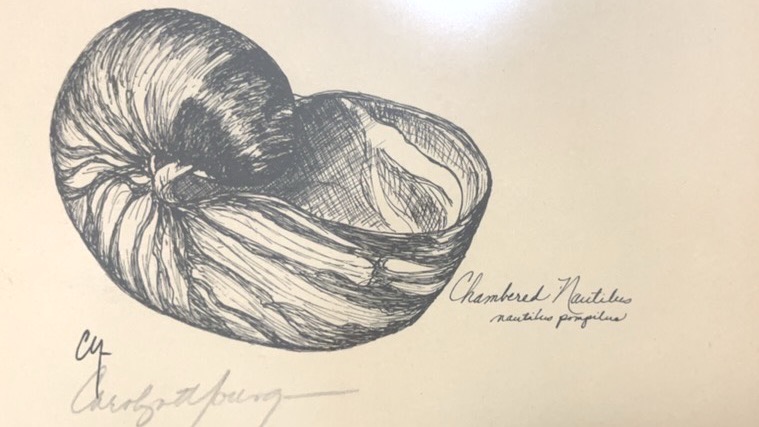 Chambered Nautilus
nautilus pompilus
CY
Carolyn H Young